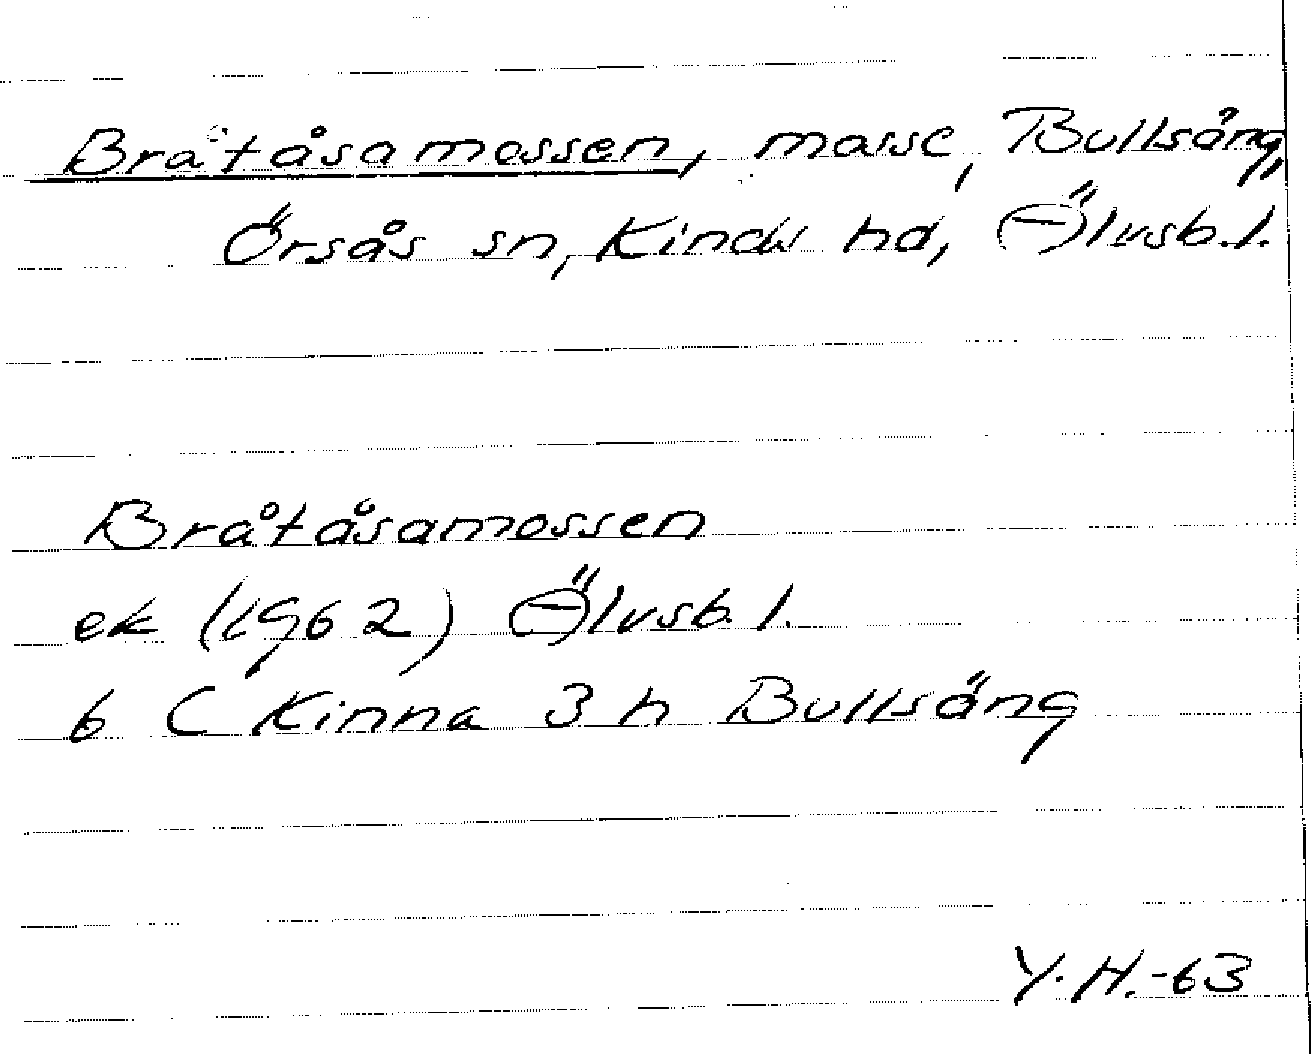 Bråtåsamossen, mosse, Bullsäng,
Örsås sn, Kinds hd, Älvsb. l.
Bråtåsamossen
ek (1962) Älvsb. l.
6 C Kinna 3 h Bullsäng
Y. H. -63